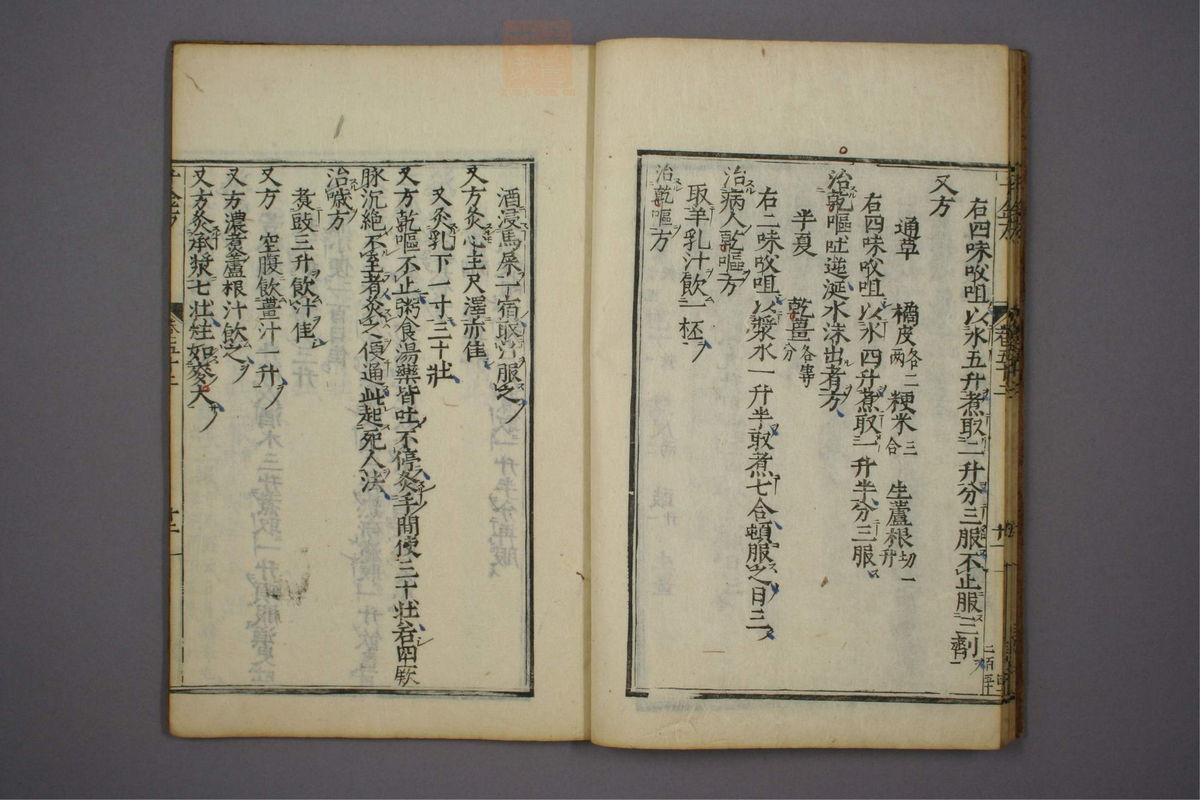 右四味㕮咀以水五升煮取二升分三服不止服三劑
又方
通草 橘皮各二兩 粳米三合 生蘆根切一升
右四味㕮咀以水四升煮取一升半分三服
治乾嘔吐逆涎水沫出者方
半夏 乾薑各等分
右二味㕮咀以漿水一升半取煮七合頓服之日三
治病人乾嘔方
取羊乳汁飲一杯
治乾嘔方
酒浸馬屎一宿取汁服之
又方灸心主尺澤亦佳
又灸乳下一寸三十壯
又方乾嘔不止粥食湯藥皆吐不停灸手間使三十壯若四厥
脉沉絕不至者灸之便通此起死人法
治噦方
煮豉三升飲汁佳
又方 空腹飲薑汁一升
又方濃煮蘆根汁飲之
又方灸承漿七壯炷如麥大
千金方
卷五十二